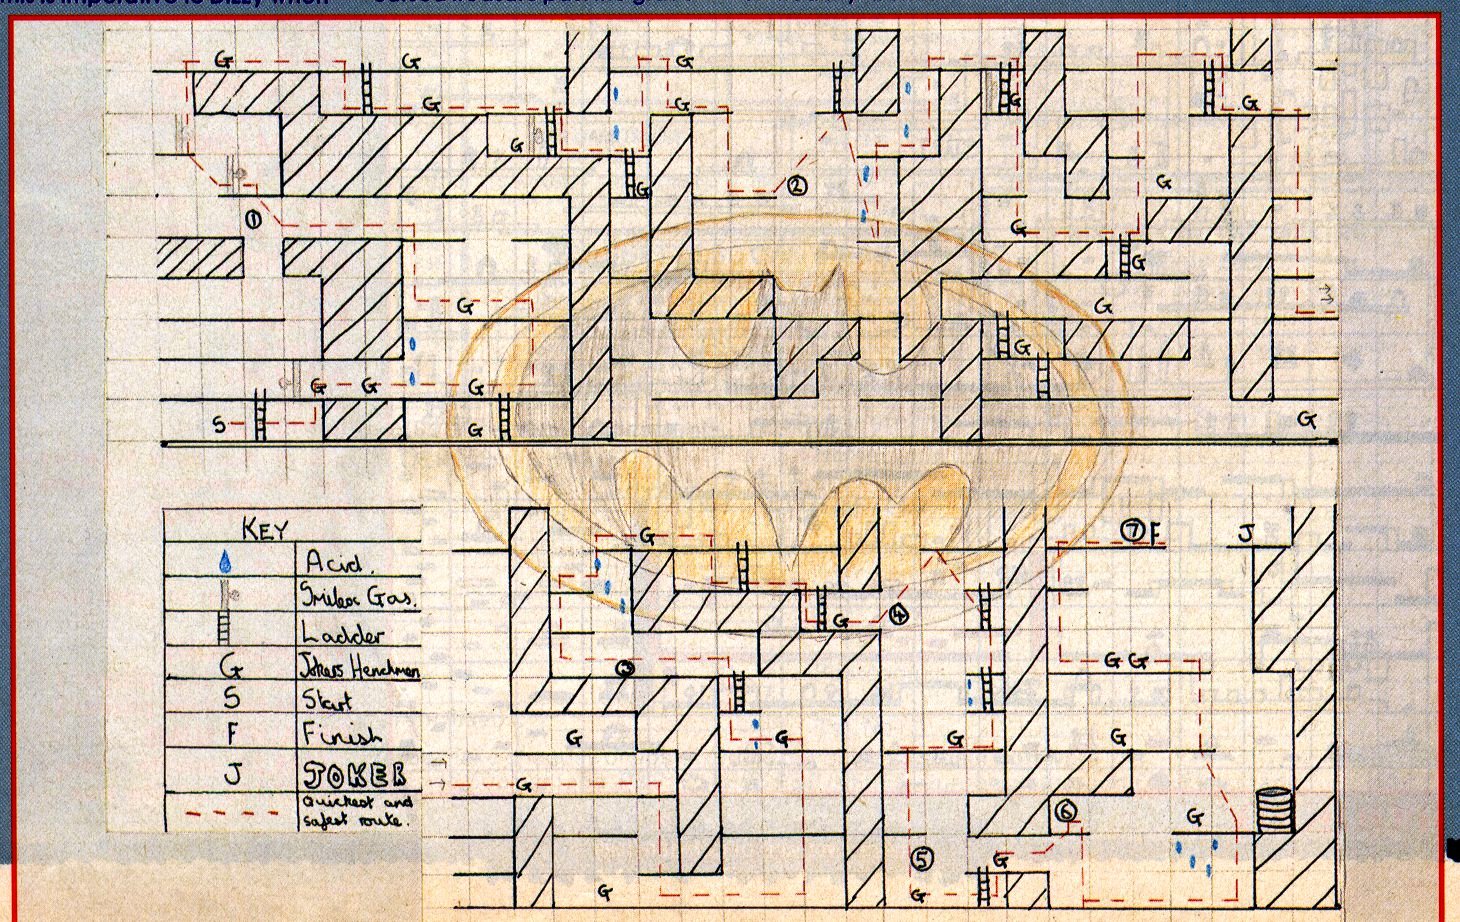 G G G
G G G G
G
G ② G
① G
G
G G
G
G G G
S G G
KEY
Acid.
Smilex Gas.
Ladder
G Jokers Henchmen
S Start
F Finish
J JOKER
Quickest and
safest route.
G ⑦ F J
G ④
③ G G
G G G G
G
⑥ G
⑤ G
G G